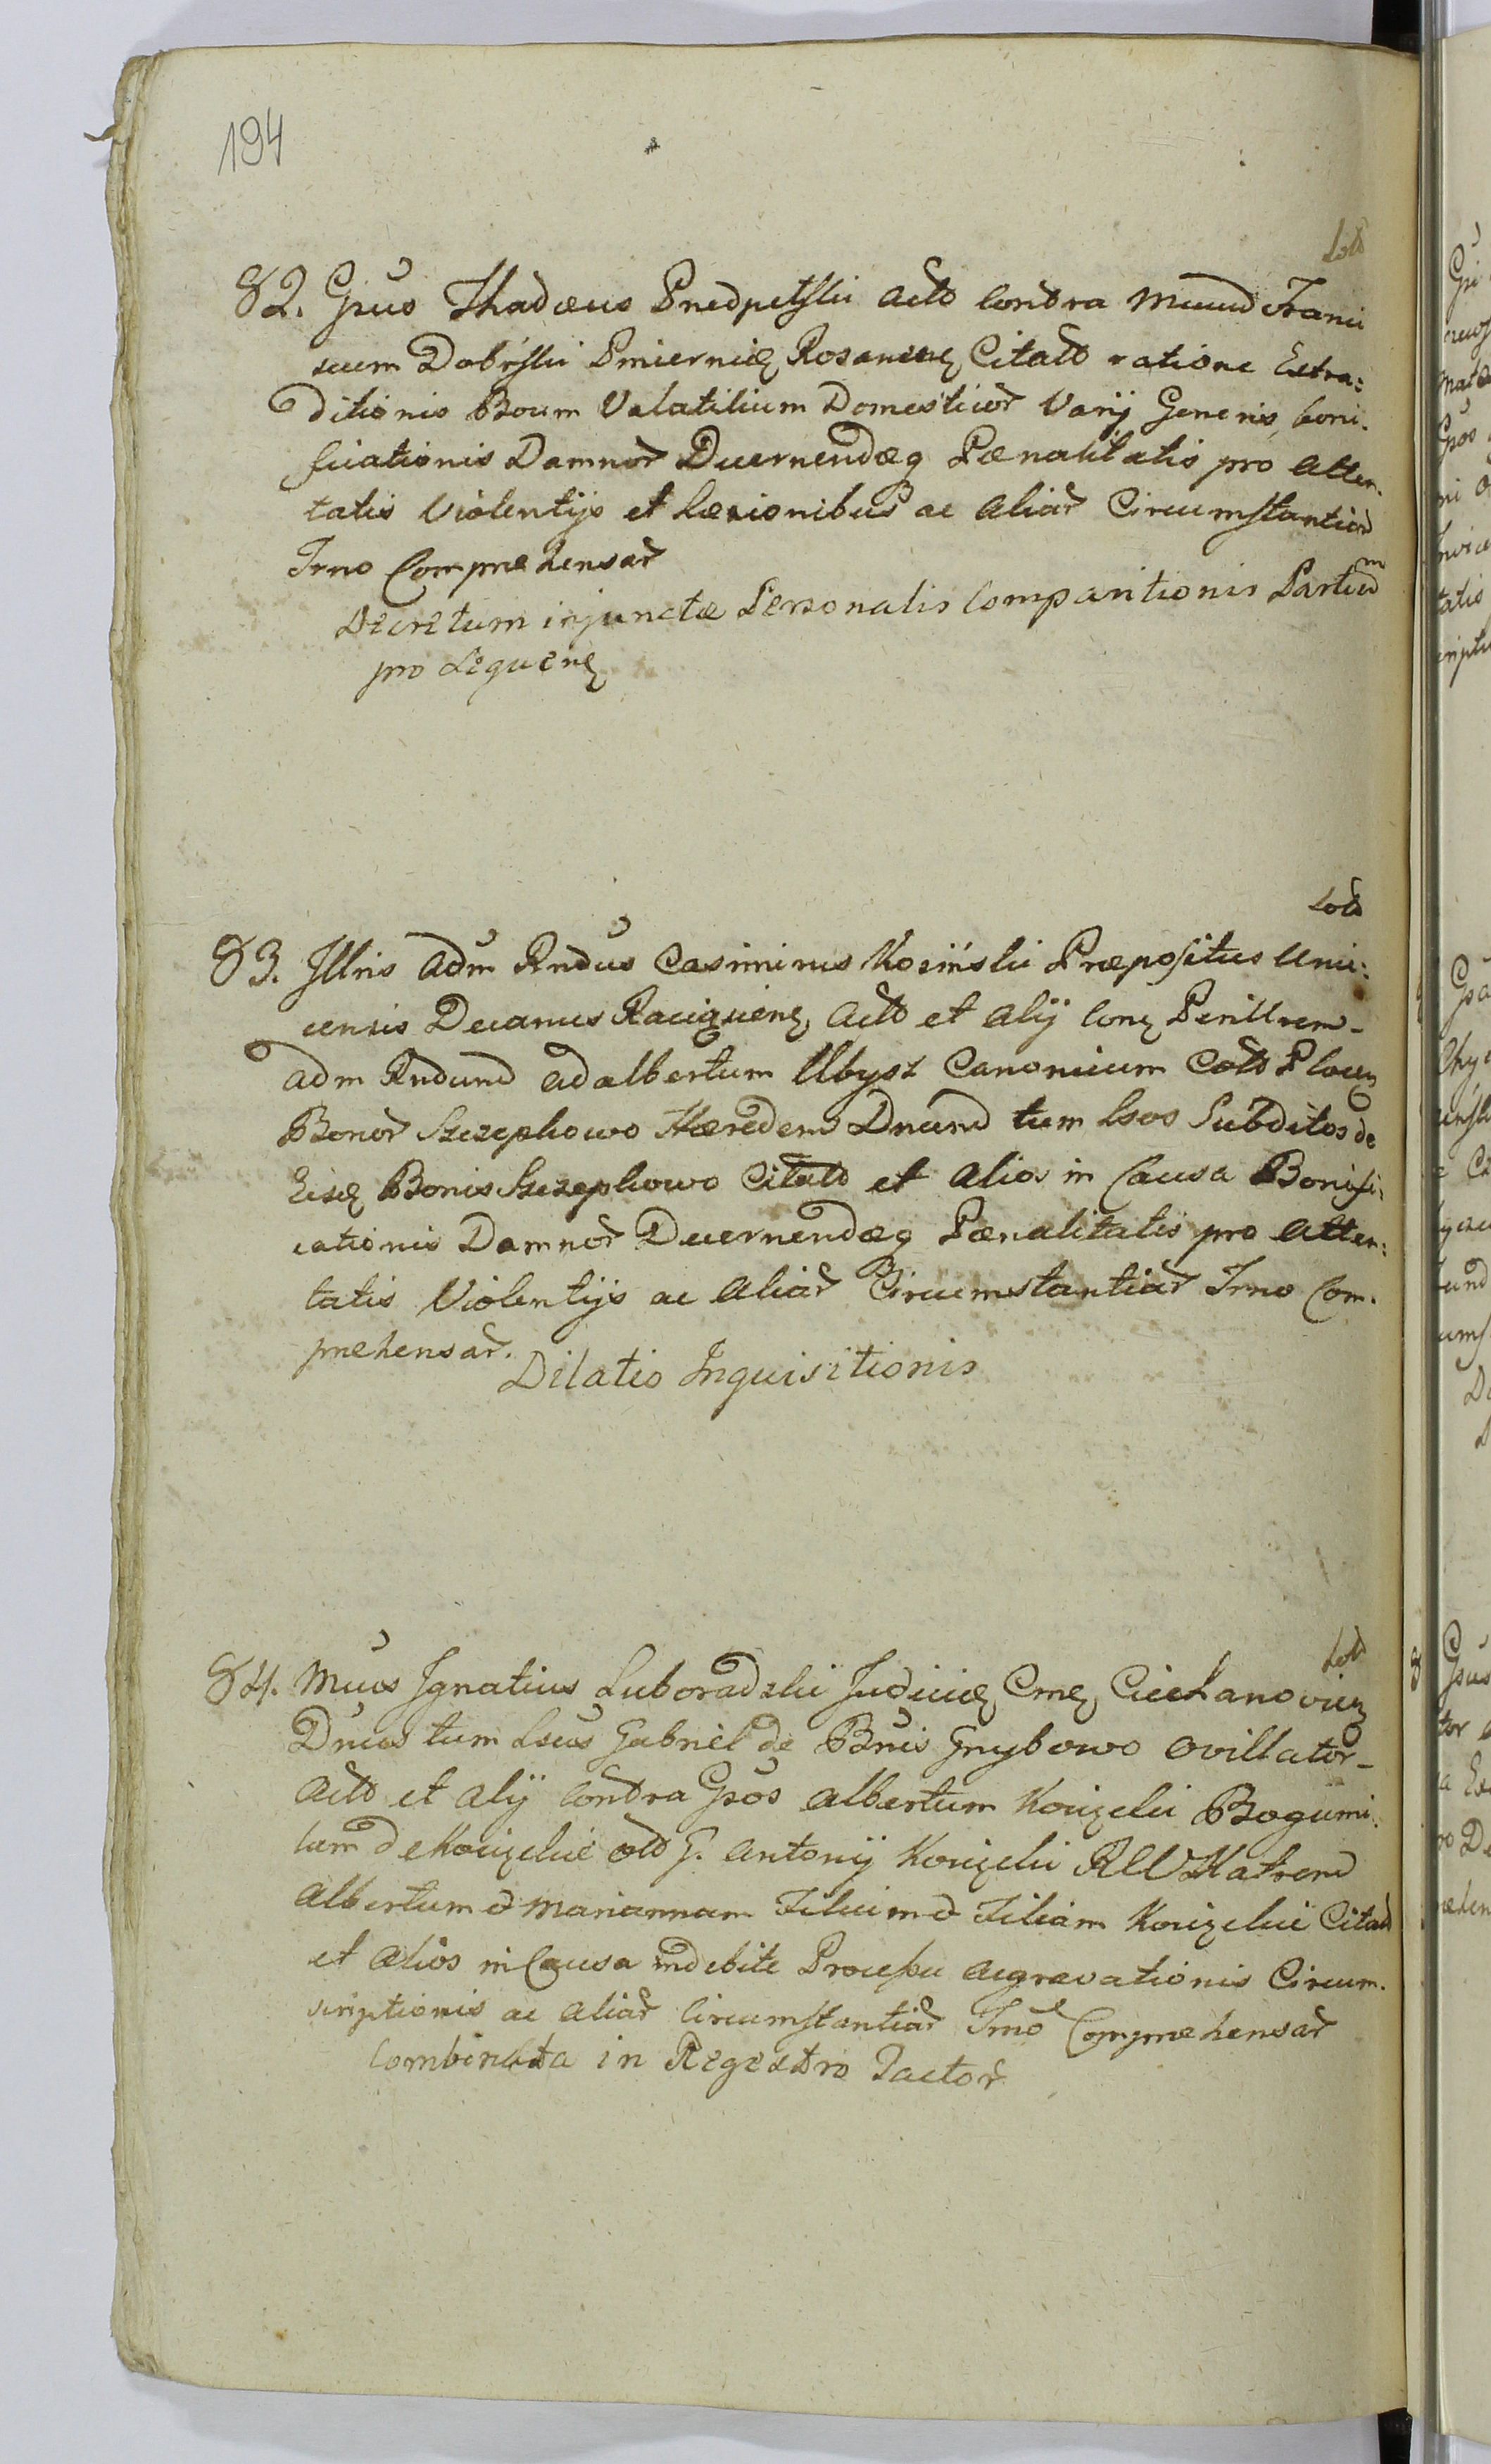 194
Lod
82. Gsus Thadæus Przedpełski Actd Contra Mcumd Franci
scum Dobrski Pmiernicz Rosanenz Citatd ratione Extra:
ditionis Boum Volatilium Domesticor Varij Generis, boni:
ficationis Damnor Decernendæq Pænalitatis pro Atten:
tatis Violentijs et Læsionibus ac Aliar Circumstantiar
Trno Comprehensar
Decretum injunctæ Personalis Comparitionis Partium
pro Sequenz
Lods
83. Jllris Adm Rndus Casimirus Kosiński Præpositus Unie:
censis Decanus Raciązienz Actd et Alij Conz Perillrem
Adm Rndumd Adalbertum Ubysz Canonicum Catd Plocenz
Bonor Szczepkowo Hæredemd Dnumd tum Lsos Subditos de
Eisd Bonis Szczepkowo Citatd et Alios in Causa Bonifi:
cationis Damnor Decernendæq Pænalitatis pro Atten:
tatis Violentijs ac Aliar Circumstantiar Trno Com:
prehensar.
Dilatio Inquisitionis
Lod
84. Mcus Ignatius Luboradzki Judicidz Cmz Ciechanovienz
Dnus tum Lsus Gabriel de Bnis Grzybowo Ovillator
Actd et Alij Contra Gsos Albertum Koziczki Bogumi:
lam de Koziczkie old G. Antonij Koziczki RUV Matrem
Albertum & Mariannam Filium & Filiam Koziczkie Citatd
et Alios in Causa indebite Processu Aggravationis Circum:
scriptionis ac Aliar Circumstantiar Trno Comprehensar
Combinata in Regestro Factor